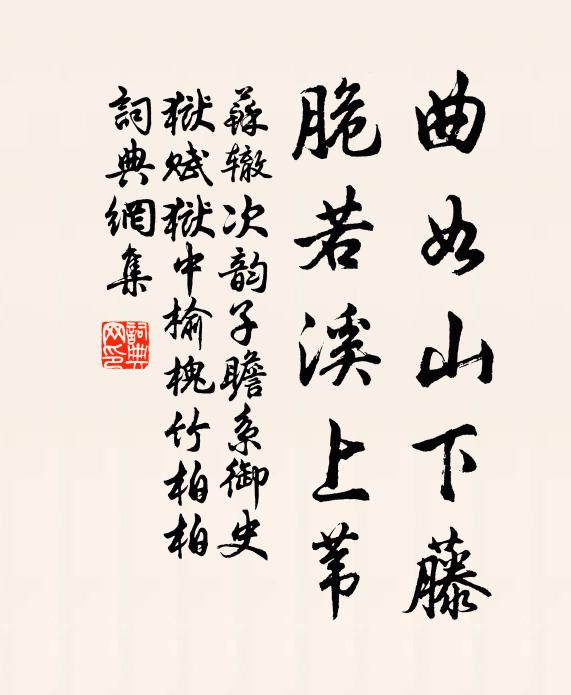 曲如山下藤
脆若溪上苇
蘇辙次韵子瞻系御史
獄赋獄中榆槐竹柏柏
詞典網集
詞典
网印